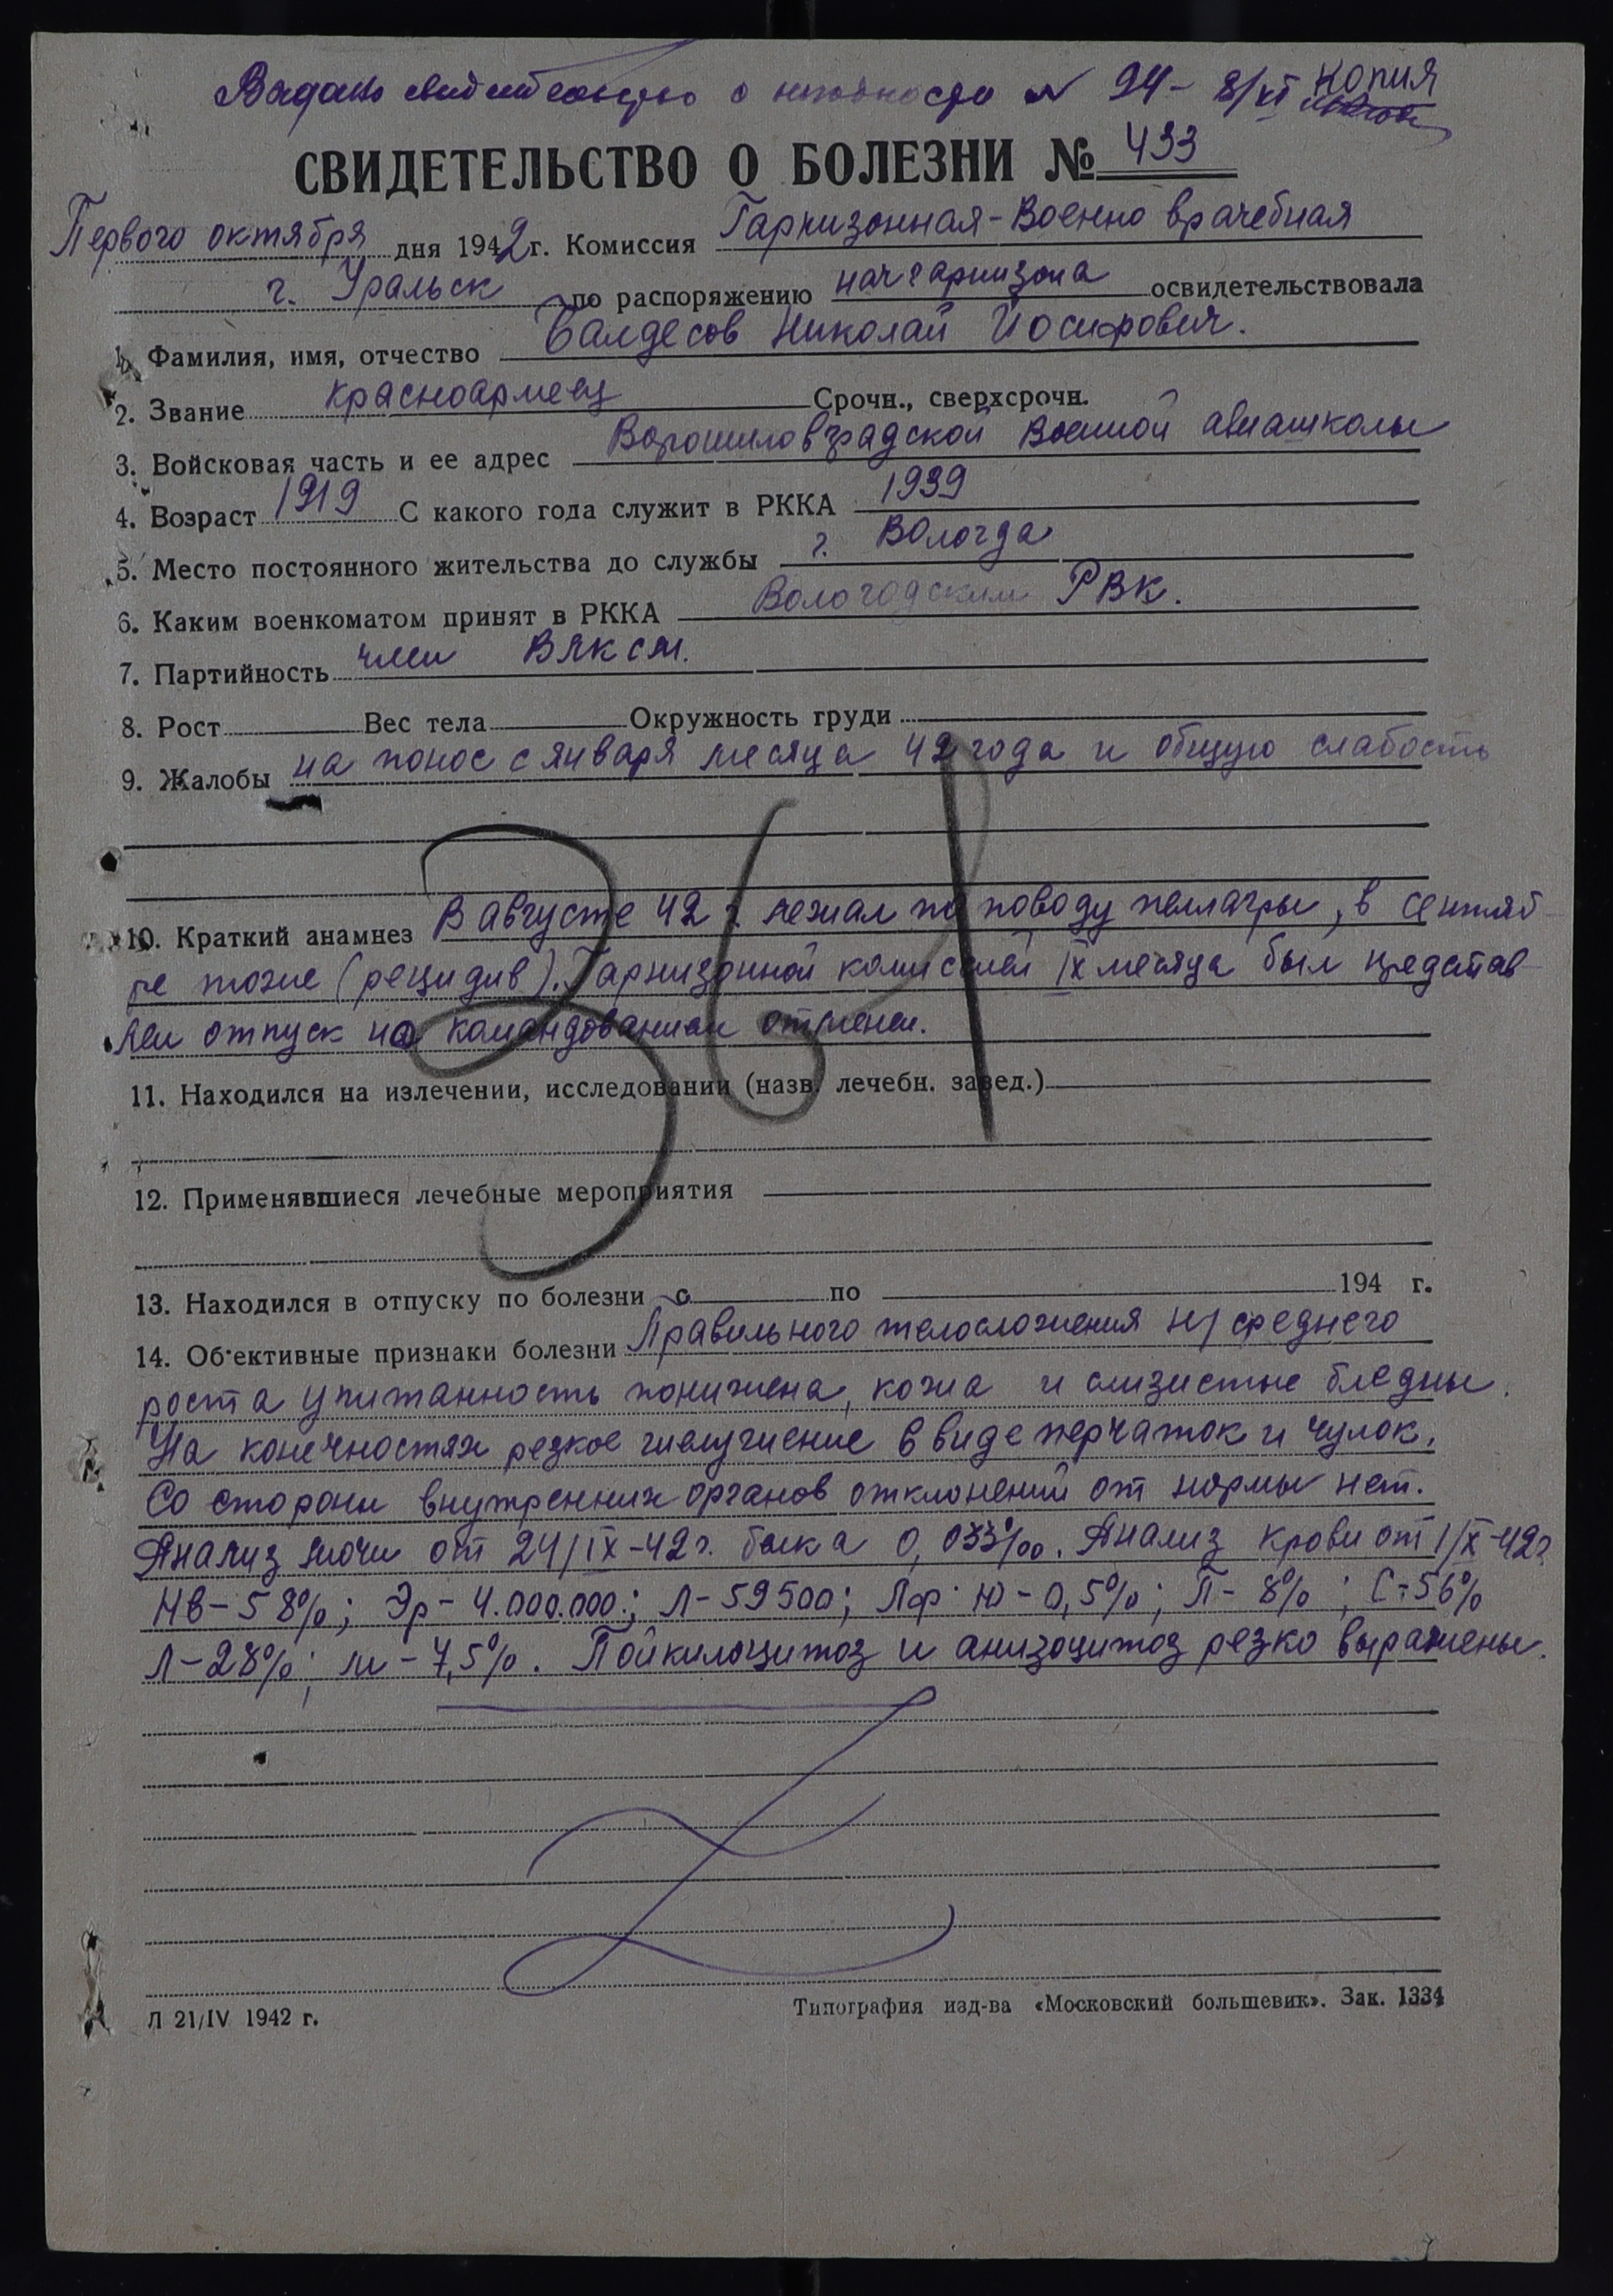 Выдано свидетельство о негодности № 94- 8/XI Копия
СВИДЕТЕЛЬСТВО О БОЛЕЗНИ № 433
Первого октября дня 1942 г. Комиссия Гарнизонная-Военно врачебная
г. Уральск по распоряжению начгарнизона освидетельствовала
1. Фамилия, имя, отчество Балдесов Николай Иосифович.
2. Звание красноармеец Срочн., сверхсрочн.
3. Войсковая часть и ее адрес Ворошиловградской военной авиашколы
4. Возраст 1919 С какого года служит в РККА 1939
5. Место постоянного жительства до службы г. Вологда
6. Каким военкоматом принят в РККА Вологодским РВК.
7. Партийность член ВЛКСМ.
8. Рост Вес тела Окружность груди
9. Жалобы на понос с января месяца 42 года и общую слабость
10. Краткий анамнез В августе 42 г. лежал по поводу пеллагры, в сентяб-
ре тоже (рецидив). Гарнизонной комиссией IX месяца был представ-
лен отпуск но командованием отменен.
361
11. Находился на излечении, исследовании (назв. лечебн. завед.)
12. Применявшиеся лечебные мероприятия
13. Находился в отпуску по болезни с по 194 г.
14. Об'ективные признаки болезни Правильного телосложения н/среднего
роста упитанность понижена, кожа и слизистые бледны.
На конечностях резкое шелушение в виде перчаток и чулок.
Со стороны внутренних органов отклонений от нормы нет.
Анализ мочи от 24/IX-42 г. белка 0,033‰. Анализ крови от 1/X-42 г.
Нв-58%; Эр-4.000.000; Л-59500; Лф. Ю-0,5%; П-8%; С-56%
Л-28%; м-7,5%. Пойкилоцитоз и анизоцитоз резко выражены.
Л 21/IV 1942 г.
Типография изд-ва «Московский большевик». Зак. 1334